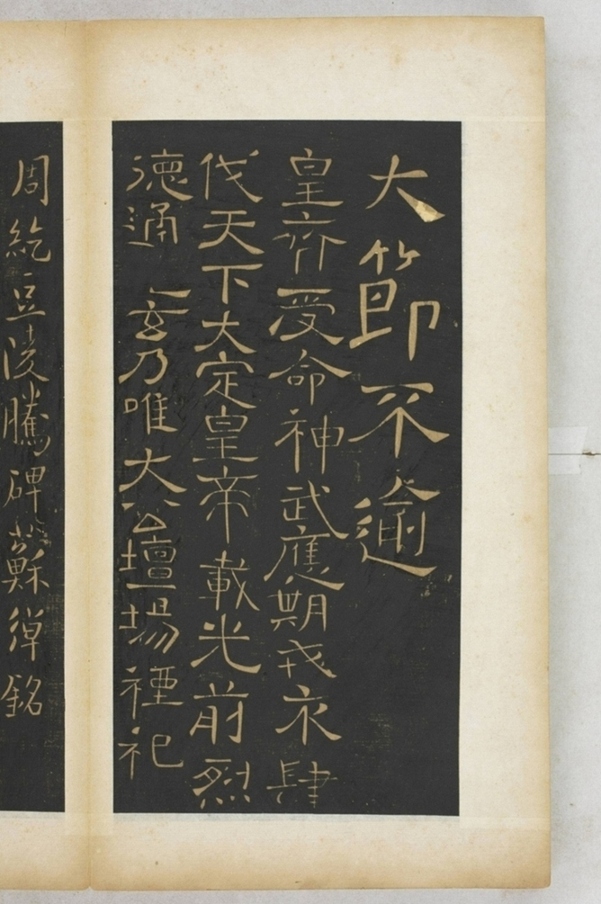 大節不逾
皇齊受命神武應期戎衣肆
伐天下大定皇帝載光前烈
德通玄乃唯大公壇場禋祀
周紇豆陵騰碑蘇綽銘